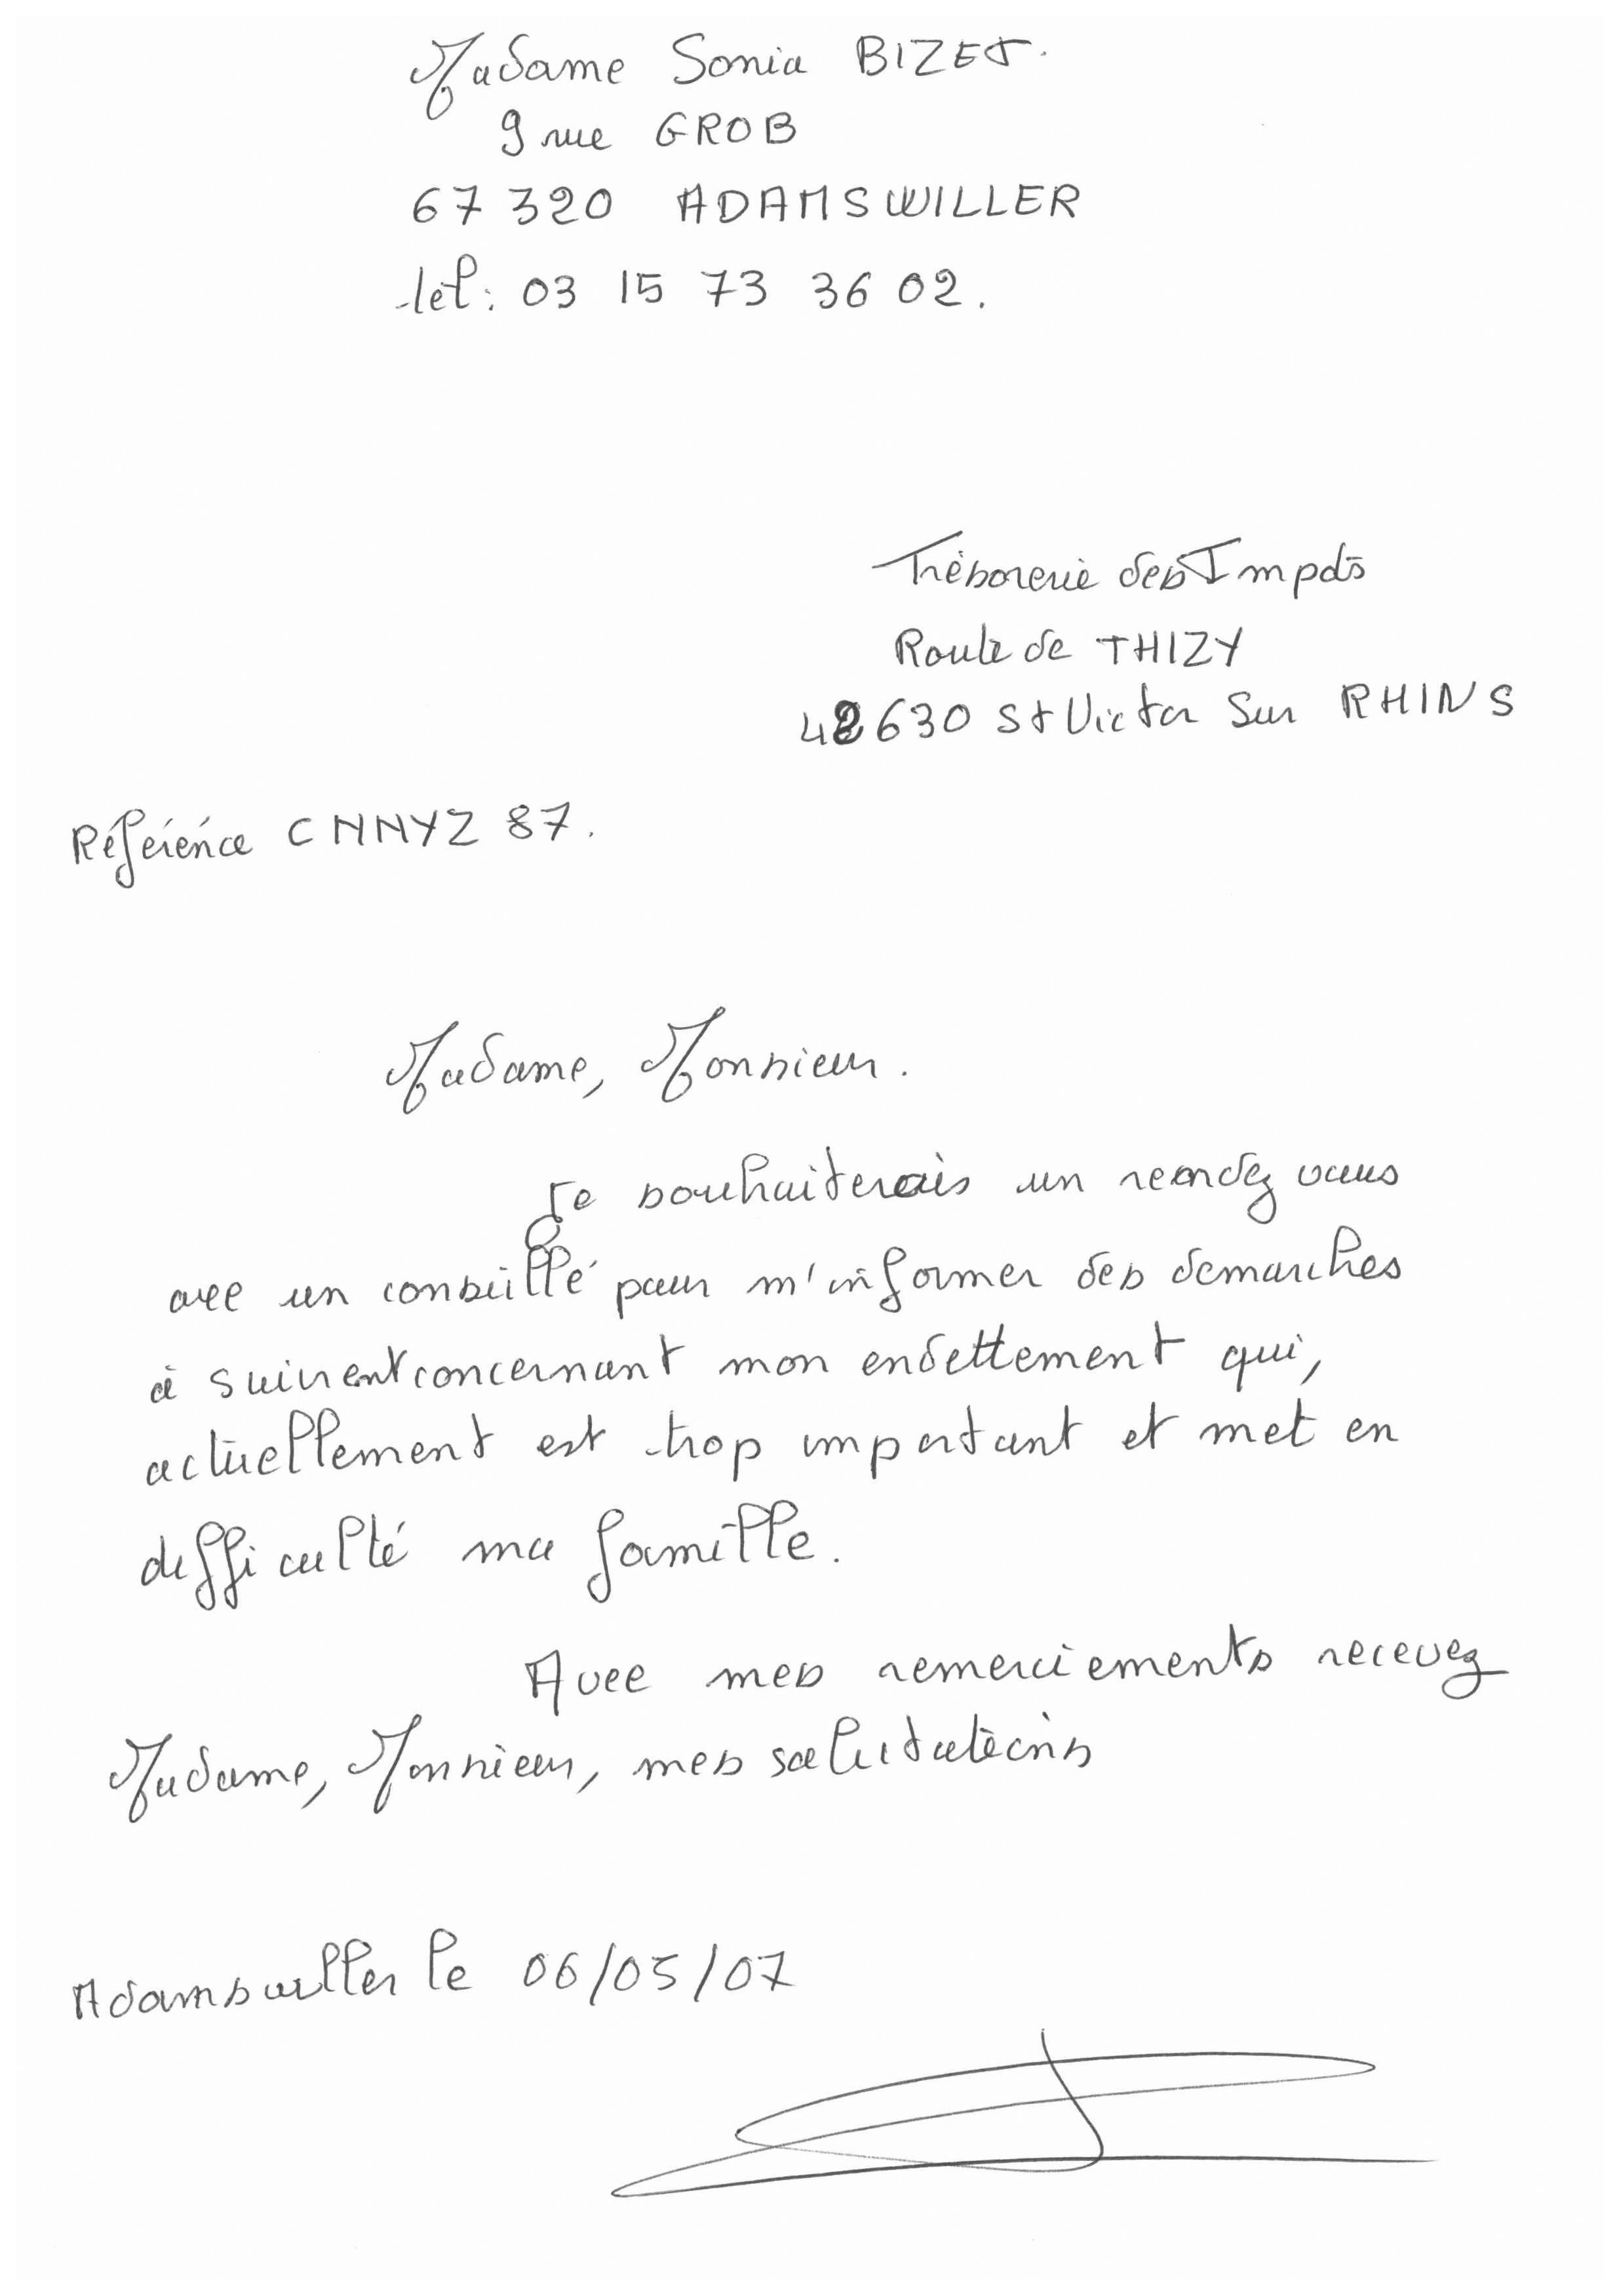 Madame Sonia BIZET.
9 rue GROB
67320 ADAMSWILLER
tel: 03 15 73 36 02.
Trésorerie des Impots
Route de THIZY
42630 St Victor Sur RHINS
Référence CNNYZ 87.
Madame, Monsieur.
Je souhaiterais un reandez vous
avec un conseillé pour m'informer des demarches
à suivent concernant mon endettement qui,
actuellement est trop important et met en
difficulté ma famille.
Avec mes remerciements recevez
Madame, Monsieur, mes salutations
Adamswiller le 06/05/07